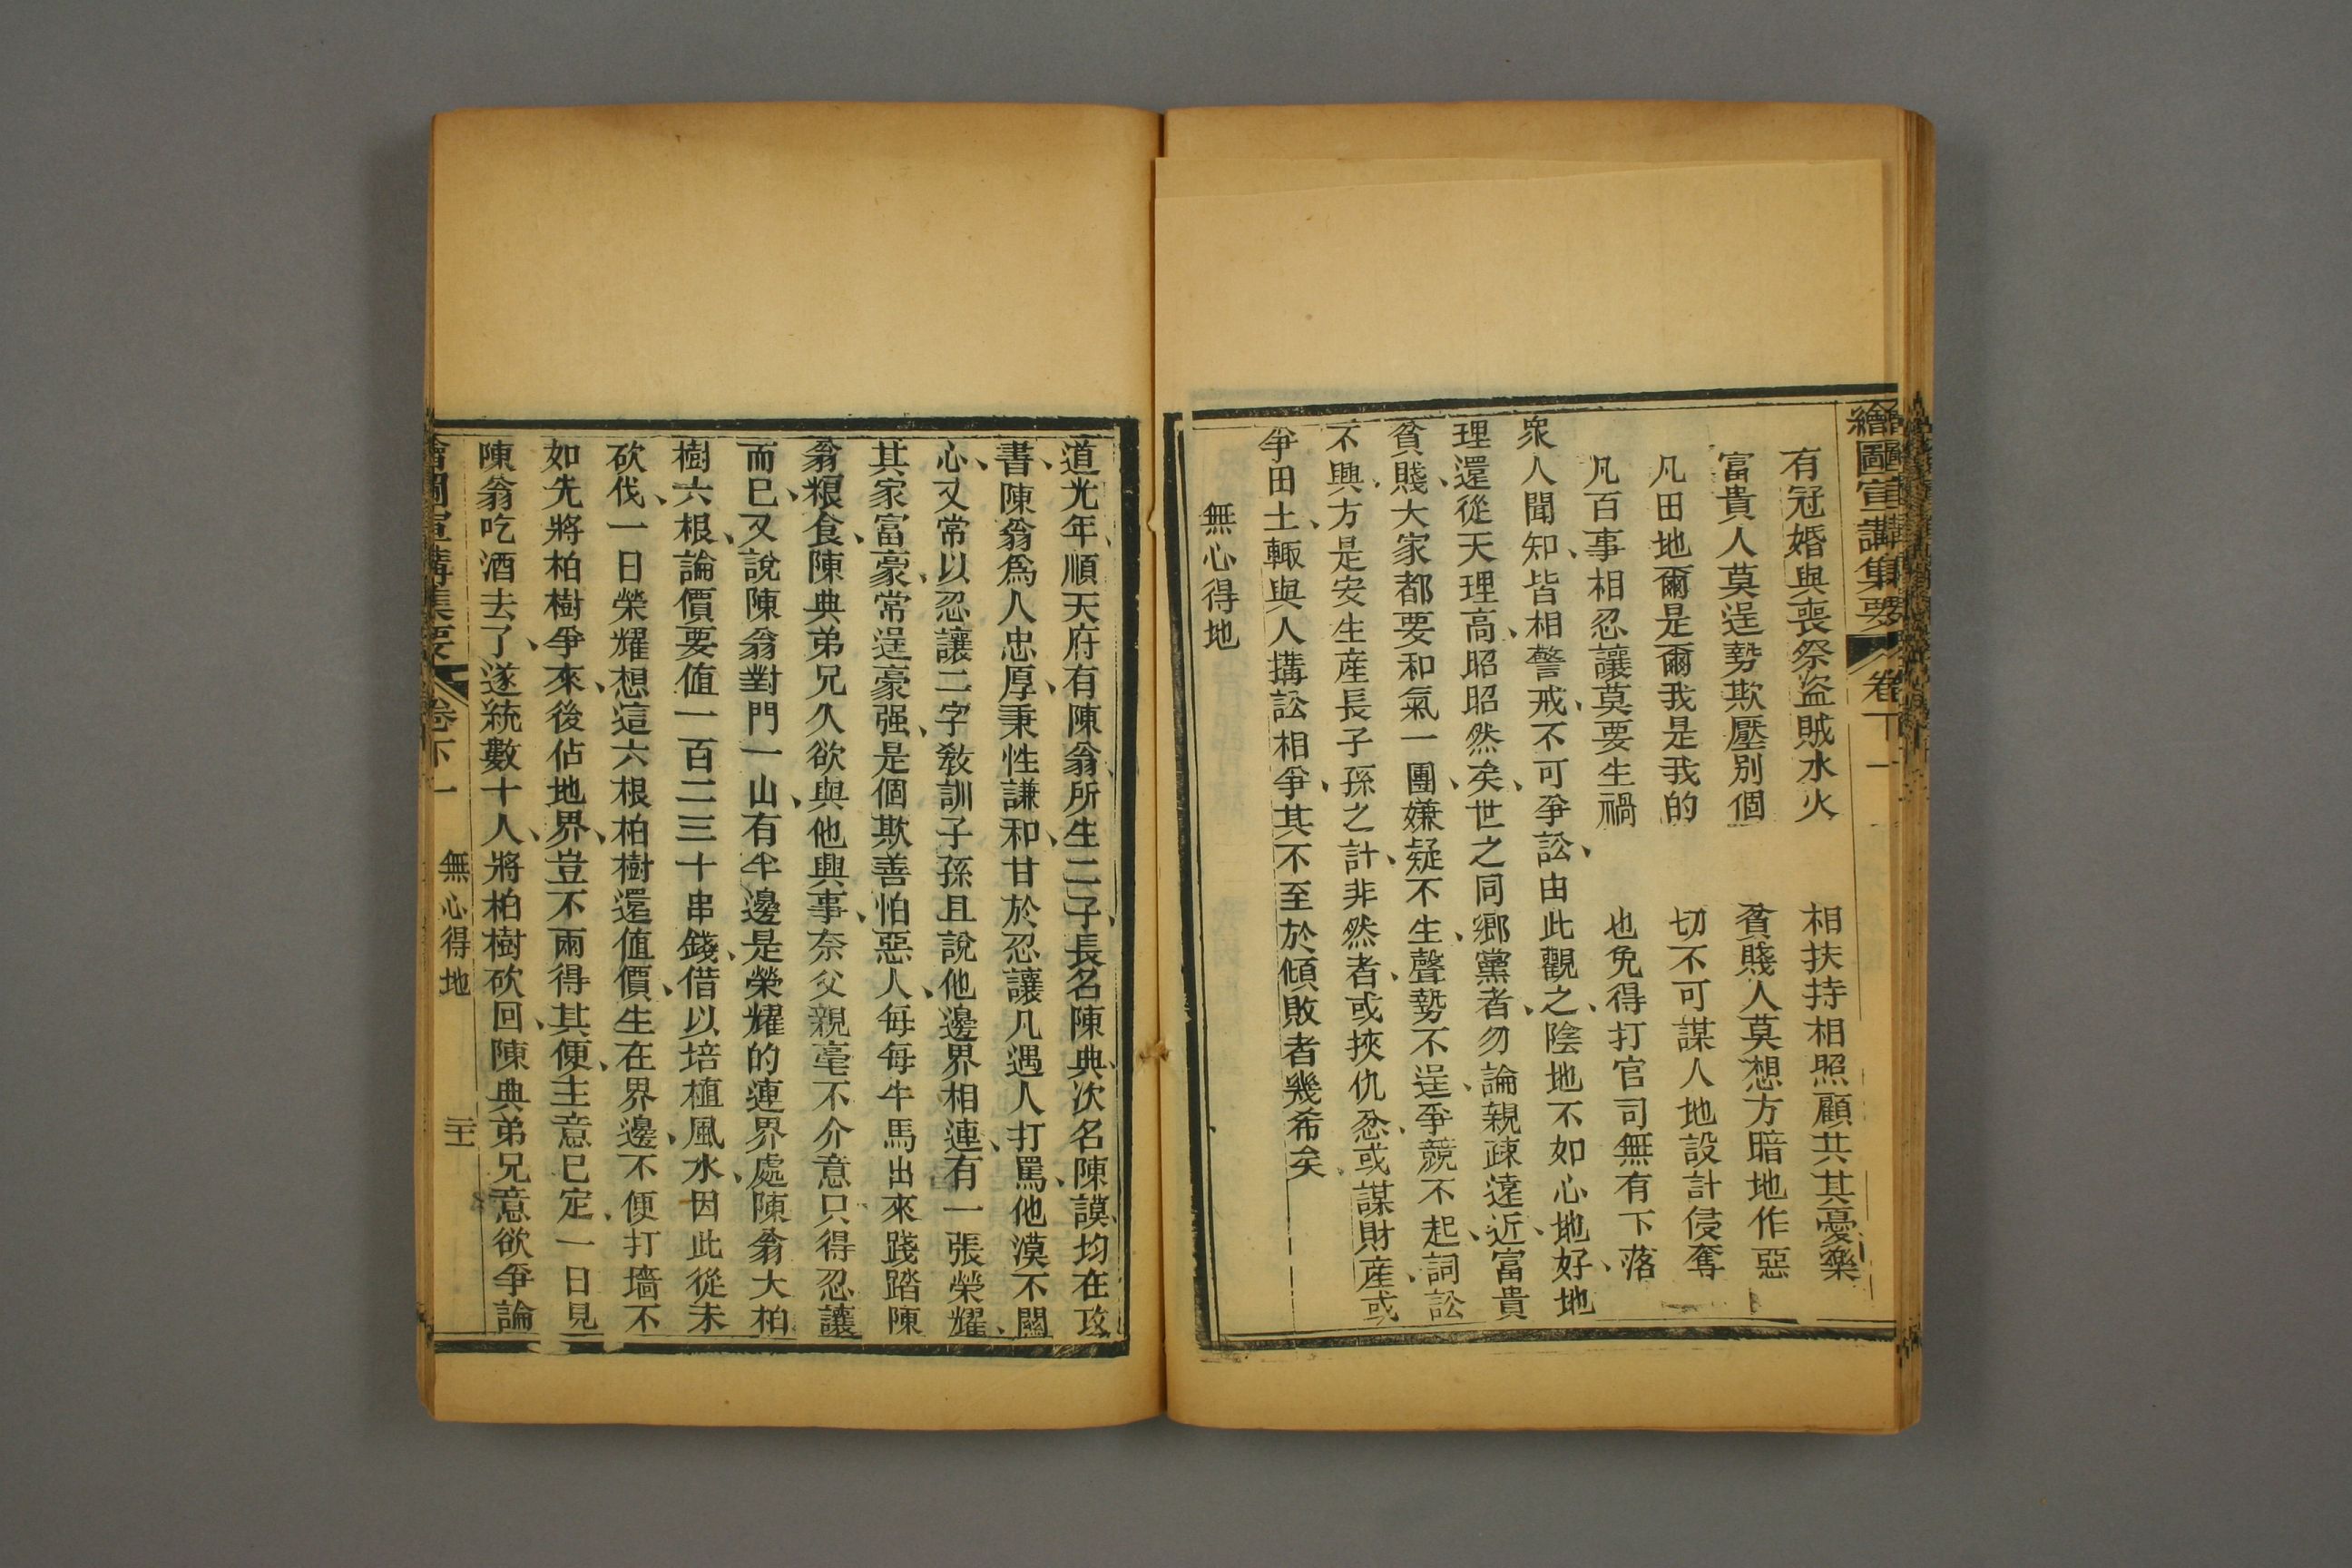 繪圖宣講集要 卷下一
有冠婚與喪祭盜賊水火 相扶持相照顧共其憂樂
富貴人莫逞勢欺壓別個 貧賤人莫想方暗地作惡
凡田地爾是爾我是我的 切不可謀人地設計侵奪
凡百事相忍讓莫要生禍 也免得打官司無有下落
衆人聞知、皆相警戒、不可爭訟、由此觀之、陰地不如心地好、地
理還從天理高、昭昭然矣、世之同鄉黨者、勿論親疎遠近、富貴
貧賤、大家都要和氣一團、嫌疑不生、聲勢不逞、爭競不起、詞訟
不興、方是安生産長子孫之計、非然者、或挾仇忿、或謀財産、或
爭田土、輙與人搆訟相爭、其不至於傾敗者幾希矣、
無心得地
道光年、順天府有陳翁、所生二子、長名陳典、次名陳謨、均在攻
書、陳翁爲人忠厚、秉性謙和、甘於忍讓、凡遇人打罵、他漠不關
心、又常以忍讓二字敎訓子孫、且說他邊界相連、有一張榮耀、
其家富豪、常逞豪强、是個欺善怕惡人、每每牛馬出來踐踏陳
翁粮食、陳典弟兄久欲與他興事、奈父親毫不介意、只得忍讓
而已、又說陳翁對門一山、有半邊是榮耀的、連界處陳翁大柏
樹六根、論價要值一百二三十串錢、借以培植風水、因此從未
砍伐、一日榮耀想這六根柏樹還值價、生在界邊、不便打墻、不
如先將柏樹爭來、後佔地界、豈不兩得其便、主意已定、一日見
陳翁吃酒去了、遂統數十人、將柏樹砍回、陳典弟兄意欲爭論
繪圖宣講集要 卷下一 無心得地